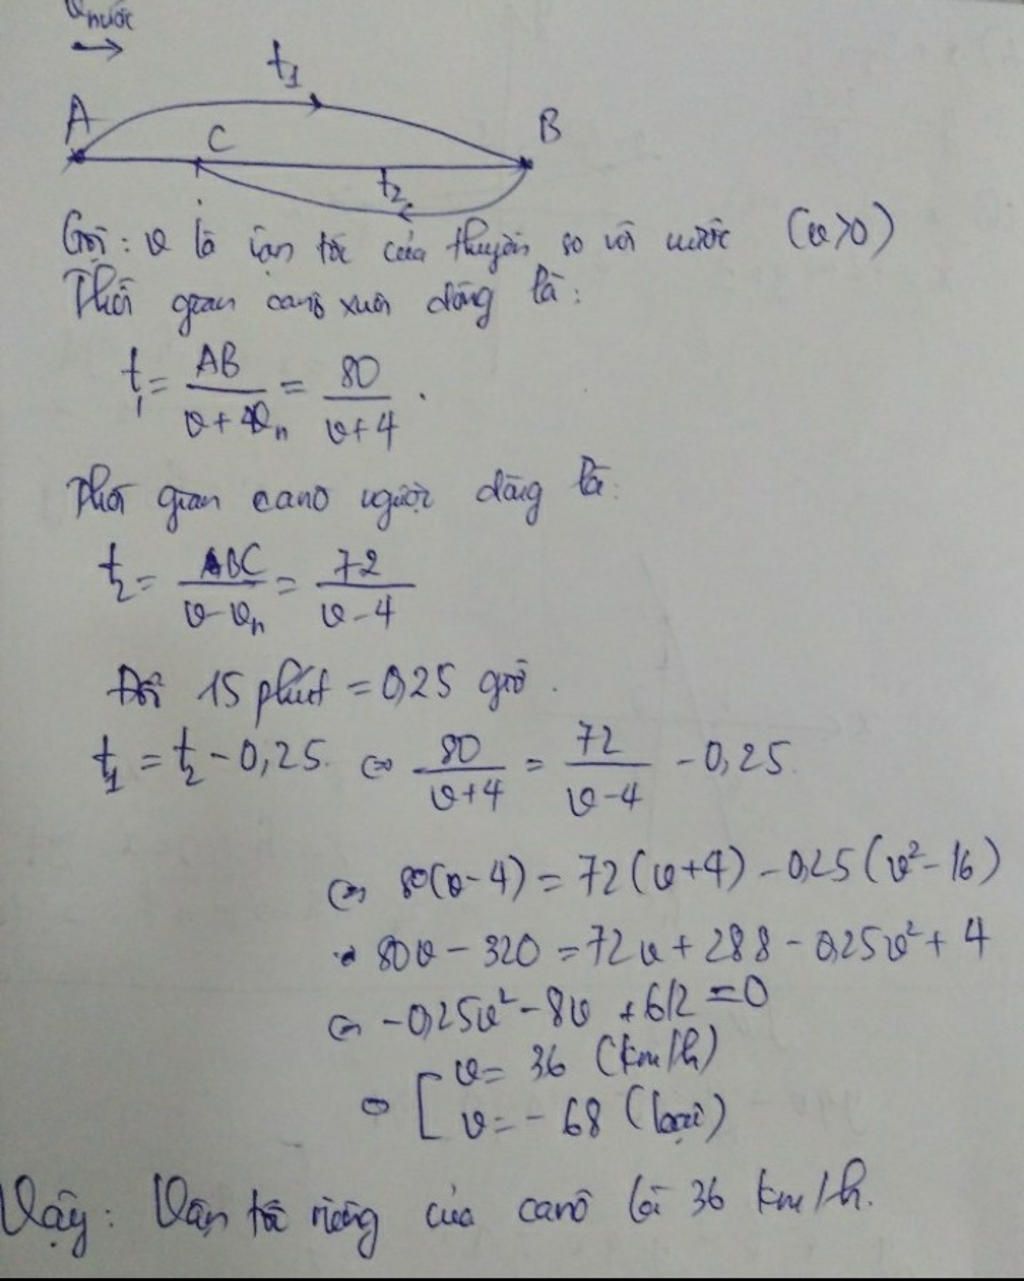 v nước
t1
A C B
t2
Gọi: v là vận tốc của thuyền so với nước (v>0)
Thời gian canô xuôi dòng là:
t1 = AB/(v+vn) = 80/(v+4).
Thời gian cano ngược dòng là:
t2 = BC/(v-vn) = 72/(v-4)
Đổi 15 phút = 0,25 giờ.
t1 = t2 - 0,25. ⇔ 80/(v+4) = 72/(v-4) - 0,25.
⇔ 80(v-4) = 72(v+4) - 0,25(v²-16)
⇔ 80v - 320 = 72v + 288 - 0,25v² + 4
⇔ -0,25v² - 8v + 612 = 0
⇔ [ v = 36 (km/h)
v = -68 (loại)
Vậy: Vận tốc riêng của canô là 36 km/h.